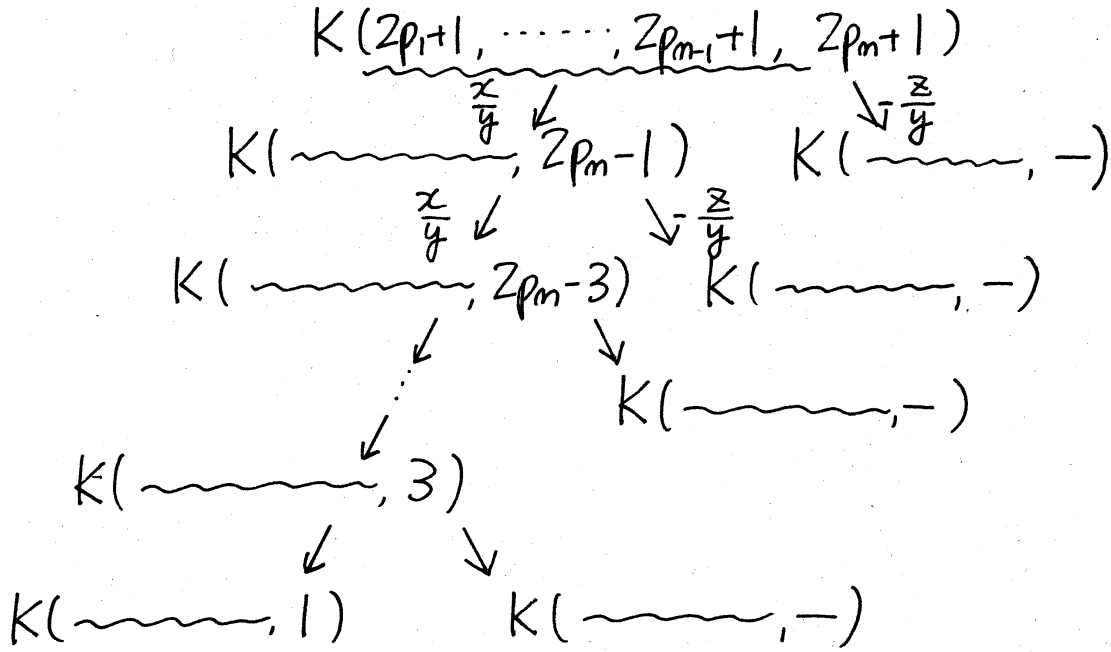 K(2p₁+1, ‥‥‥, 2pₙ₋₁+1, 2pₙ+1)
x/y -z/y
K(~~~~, 2pₙ-1) K(~~~~, -)
x/y -z/y
K(~~~~, 2pₙ-3) K(~~~~, -)
K(~~~~, -)
K(~~~~, 3)
K(~~~~, 1) K(~~~~, -)